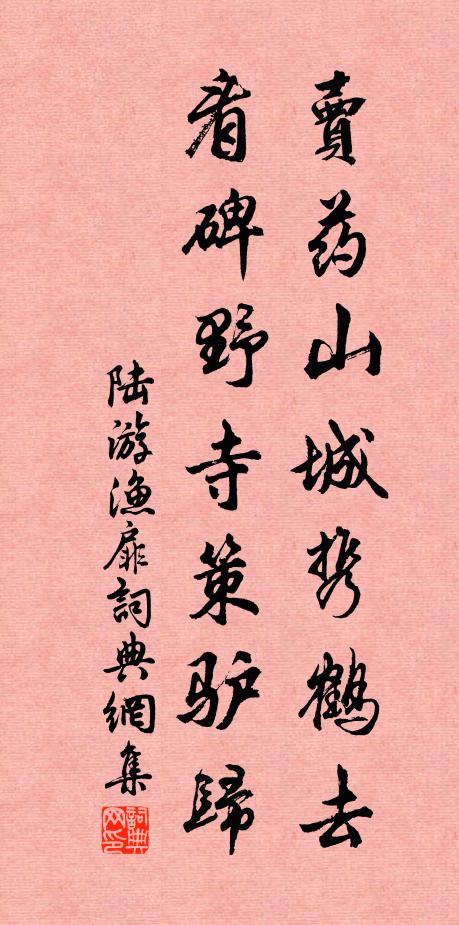 賣药山城携鶴去
看碑野寺策驴歸
陆游漁扉詞典網集
詞典网印